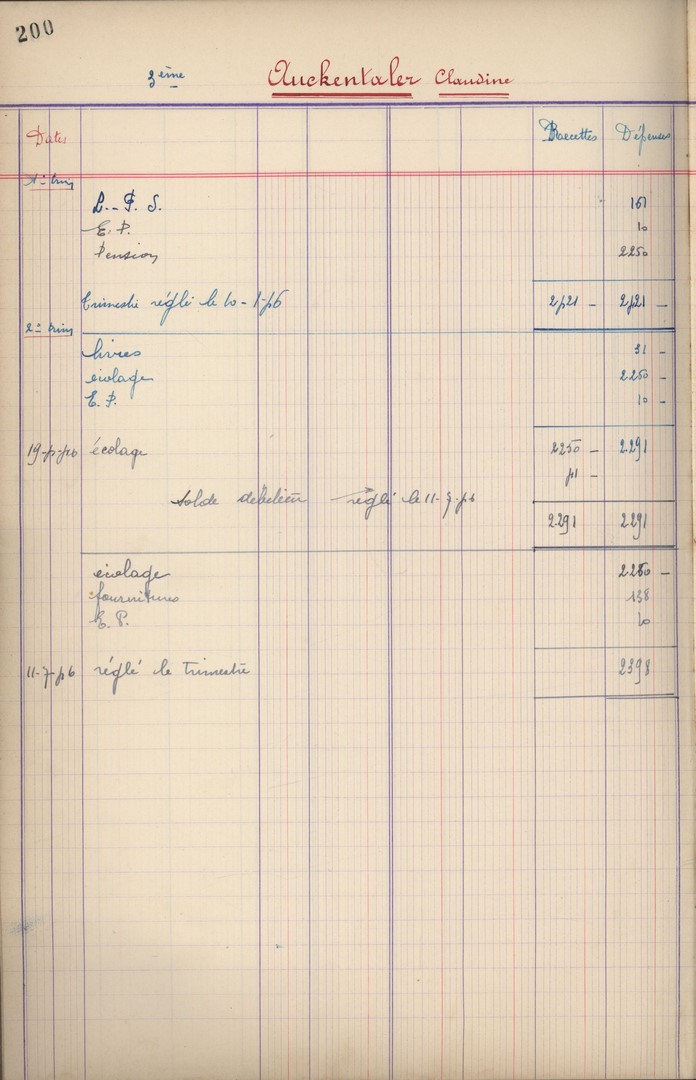 200
3ème Auckentaler Claudine
Dates Recettes Dépenses
1er trim
L. P. S. 161
E. P. 10
Pension 2250
trimestre réglé le 10-1-56 2421 - 2421 -
2e trim
livres 31 -
écolage 2250 -
E. P. 10 -
écolage 2250 - 2291
41 -
Solde débiteur réglé le 11-7-56
2291 2291
écolage 2250 -
fournitures 138
E. P. 10
11-7-56 réglé le trimestre 2398